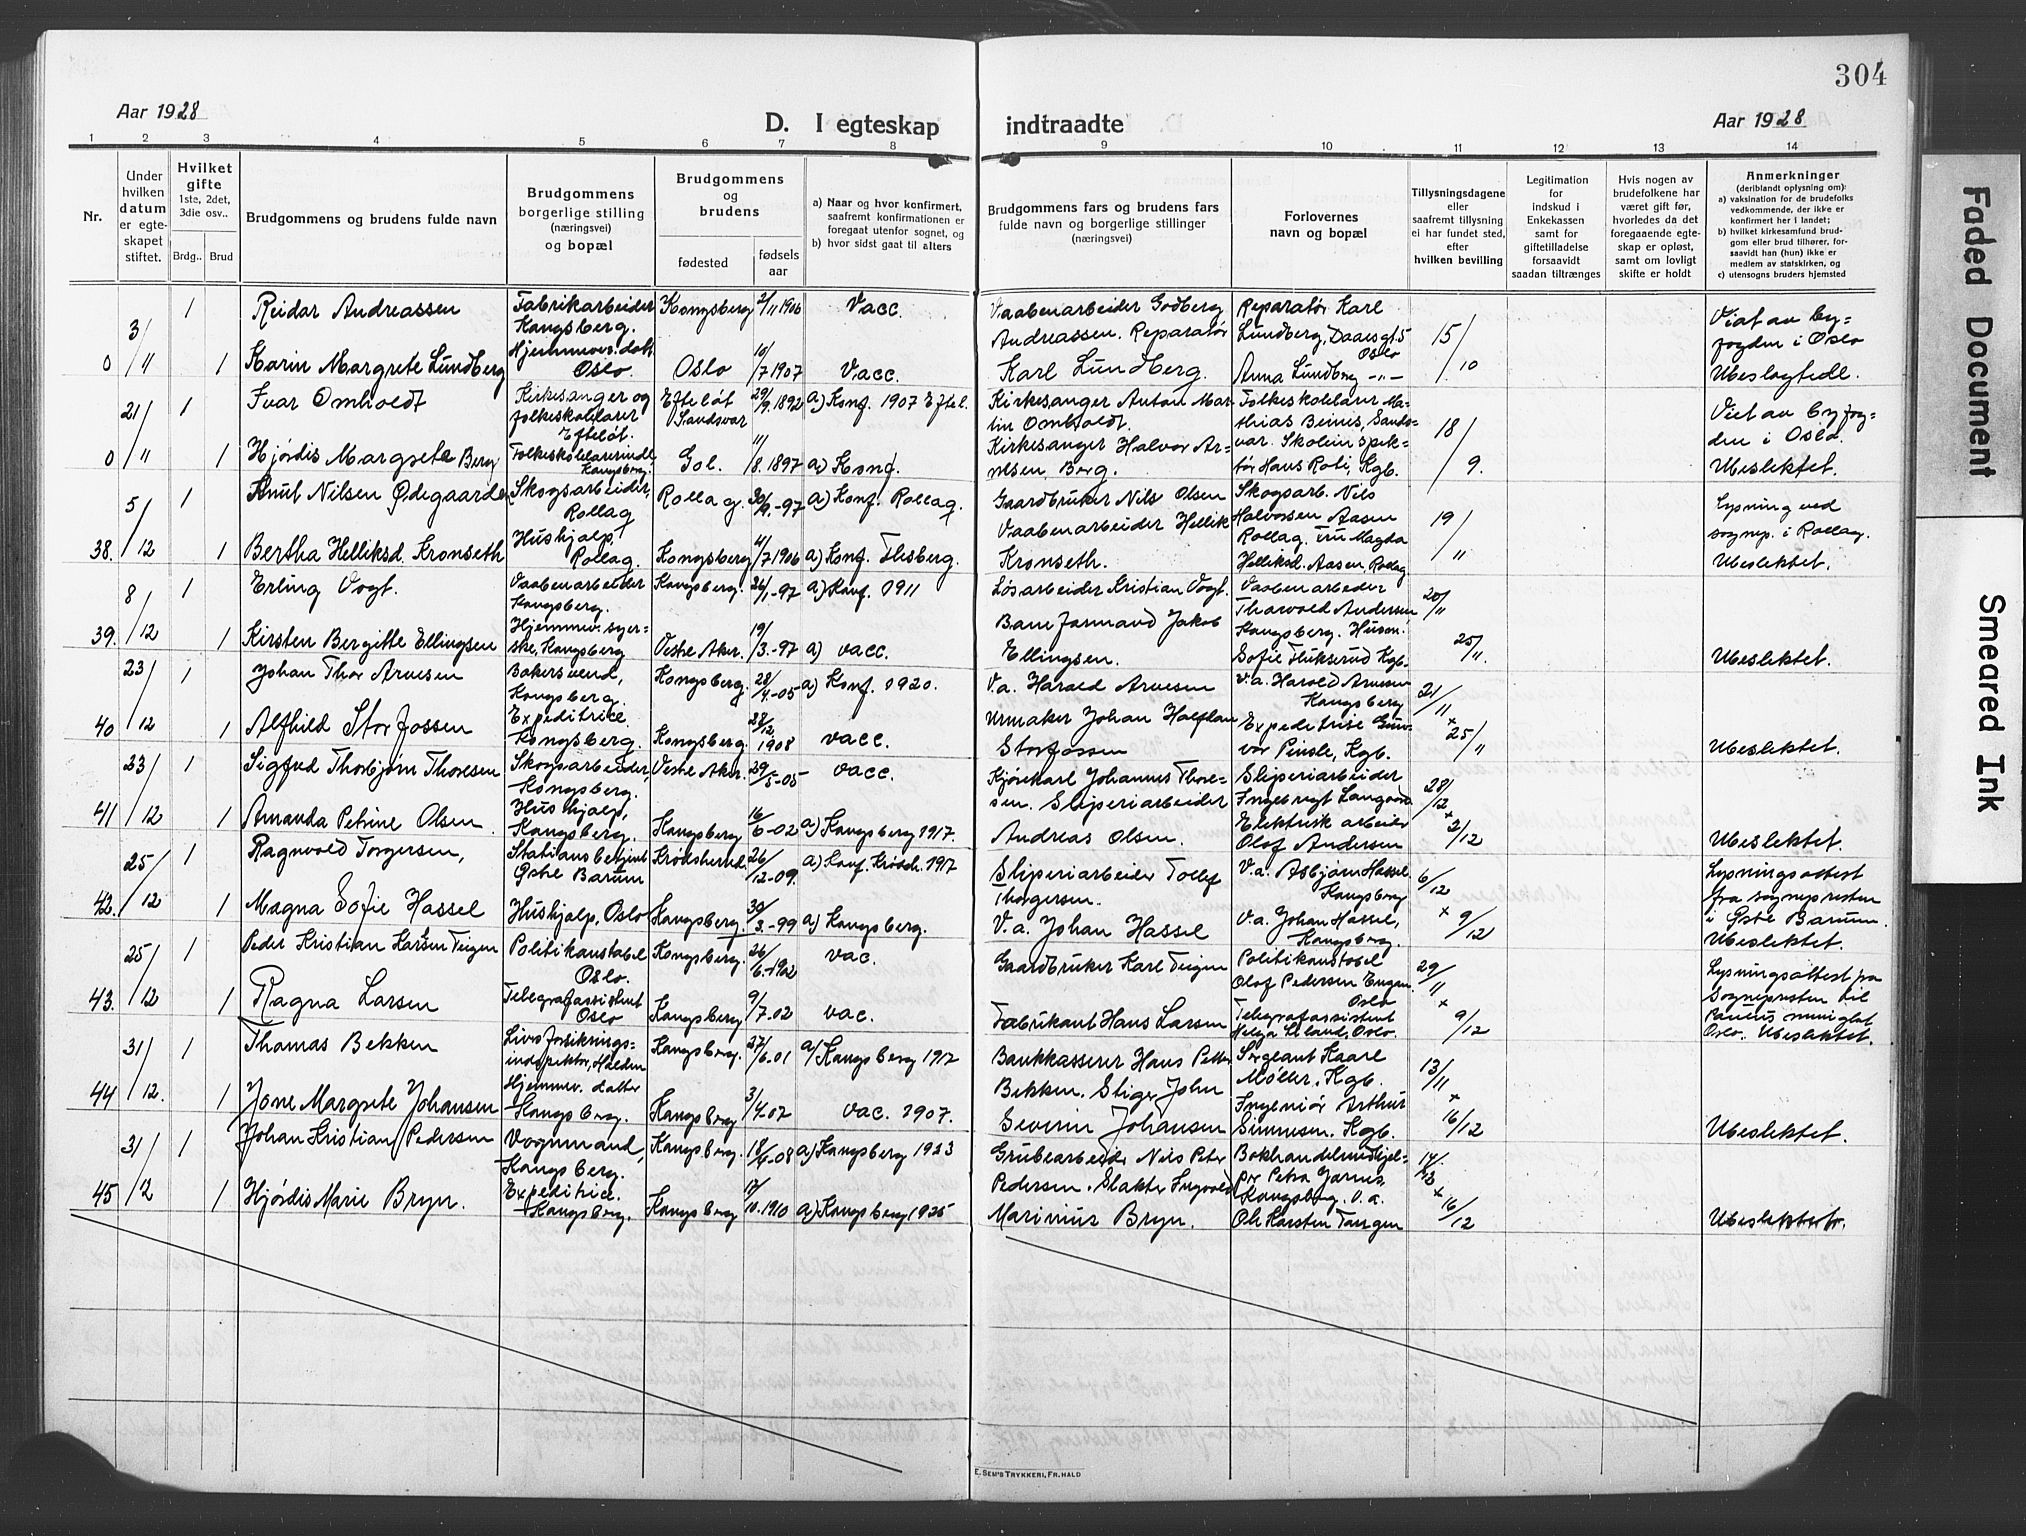 304
Aar 1928
D. I egteskap indtraadte
Aar 1928
1 2 3 4 5 6 7 8 9 10 11 12 13 14
Nr.
Under hvilken datum er egte-skapet stiftet.
Hvilket gifte
1ste, 2det, 3die osv..
Brdg.. Brud
Brudgommens og brudens fulde navn
Brudgommens borgerlige stilling (næringsvei) og bopæl
Brudgommens og brudens
fødested
fødsels aar
a) Naar og hvor konfirmert, saafremt konfirmationen er foregaat utenfor sognet, og
b) hvor sidst gaat til alters
Brudgommens fars og brudens fars fulde navn og borgerlige stillinger (næringsvei)
Forlovernes navn og bopæl
Tillysningsdagene eller saafremt tillysning ei har fundet sted, efter hvilken bevilling
Legitimation for indskud i Enkekassen samt for giftetilladelse forsaavidt saadan tiltrænges
Hvis nogen av brudefolkene har været gift før, hvorledes da det foregaaende egte-skap er opløst, samt om lovligt skifte er holdt
Anmerkninger
(deriblandt oplysning om):
a) vaksination for de brudefolks vedkommende, der ikke er konfirmert her i landet;
b) hvilket kirkesamfund brud-gom eller brud tilhører, for-saavidt han (hun) ikke er medlem av statskirken, og
c) utensogns bruders hjemsted
0 3/11 1 Reidar Andreassen Fabrikarbeider Kongsberg. Kongsberg 2/11 1906 Vacc.
1 Karin Margrete Lundberg Hjemmev. datt. Oslo. Oslo 10/7 1907 Vacc.
Vaabenarbeider Godberg Andreassen. Reparatør Karl Lundberg.
Reparatør Karl Lundberg, Daaesgt. 5 Oslo
Anna Lundberg -"-
15/10
Viet av by-fogden i Oslo
Ubeslegtede.
0 21/11 1 Ivar Omholdt Kirkesanger og folkeskolelærer Efteløt. Efteløt Sandsvær 29/9. 1892 a) Konf. 1907 Eftel.
1 Hjørdis Margrete Berg Folkeskolelærerinde Kongsberg. Gol. 11/8. 1897 a) Konf.
Kirkesanger Anton Mar-tin Omholdt.
Kirkesanger Halvor Ar-nesen Berg.
Folkeskolelærer Ma-thias Beinis, Sands-vær. Skoleinspek-tør Hans Roti, Kgb.
18/9.
Viet av byfog-den i Oslo.
Ubeslektet.
38. 5/12 1 Knut Nilsen Ødegaarden Skogsarbeider, Rollag Rollag. 30/9.-97 a) Konf. Rollag.
1 Bertha Helliksd. Kronseth Hushjelp, Rollag. Kongsberg 4/7 1906 a) Konf. Flesberg.
Gaardbruker Nils Olsen
Vaabenarbeider Hellik Kronseth.
Skogsarb. Nils Halvorsen Aasen Rollag. Fru Magda Helliksd. Aasen. Rollag
19/11
Lysning ved sognep. i Rollag.
Ubeslektet.
39. 8/12 1 Erling Vogt. Vaabenarbeider Kongsberg. Kongsberg. 26/1-97 a) Konf. 1911
1 Kirsten Bergitte Ellingsen Hjemmev. syer-ske, Kongsberg Vestre Aker. 19/3.-97 a) vacc.
Løsarbeider Kristian Vogt.
Baneformand Jakob Ellingsen.
Vaabenarbeider Thorvald Andersen Kongsberg.
Sofie Flukserud Kgb.
20/11 25/11.
Ubeslektet.
40 23/12 1 Johan Thor Arvesen Bakersvend, Kongsberg. Kongsberg. 28/4.-05 a) Konf. 1920.
1 Alfhild Storfossen Expeditrice. Kongsberg. Kongsberg. 28/12 1908 vacc.
V.a. Harald Arvesen
Urmaker Johan Halfdan Storfossen
V.a. Harald Arvesen Kongsberg
Expeditrise Gun-vor Pinsle, Kgb.
21/11 × 25/11
Ubeslektet.
41 23/12 1 Sigfred Thorbjørn Thoresen Skogsarbeider, Kongsberg. Vestre Aker. 29/5-05 vacc.
1 Amanda Petrine Olsen. Hushjelp, Kongsberg. Kongsberg 16/6-02 a) Kongsberg 1917.
Kjørekarl Johannes Thore-sen. Sliperiarbeider Andreas Olsen.
Sliperiarbeider Ingebrigt Langaard
Elektrisk arbeider Olaf Andersen
28/12 × 2/12
Ubeslektet.
42. 25/12 1 Ragnvald Torgersen, Stationsbetjent Østre Bærum Krødsherred. 26/12-09. a) Konf. Krødsh. 1917
1 Magna Sofie Hassel Hushjelp, Oslo Kongsberg. 30/3.-99 a) Kongsberg.
Sliperiarbeider Tollef Thorgersen.
V.a. Johan Hassel
V.a. Asbjørn Hassel Kongsberg
V.a. Johan Hassel, Kongsberg.
6/12 × 9/12
Lysningsattest fra sognepresten i Østre Bærum.
Ubeslektet.
43. 25/12 1 Peder Kristian Karsen Teigen Politikonstabel Oslo. Kongsberg. 26/6.-1902 vac.
1 Ragna Larsen Telegrafassistent Oslo Kongsberg 9/7-02 vac.
Gaardbruker Karl Teigen
Fabrikant Hans Larsen
Politikonstabel Olaf Pedersen Engen. Oslo
Telegrafassistent Helga Liland, Oslo.
29/11 × 9/12
Lysningsattest fra Sognepresten til
Oslo. Ubeslektet.
44 31/12. 1 Thomas Bekken Livsforsikrings-inspektør, Halden Kongsberg. 27/6.01 a/ Kongsberg 1917
1 Jone Margrete Johansen Hjemmev. datter Kongsberg. Kongsberg 3/4.07 vac. 1907.
Bankkasserer Hans Petter Bekken. Stiger John Severin Johansen
Sergeant Kaare Møller, Kgb.
Ingeniør Arthur Simensen. Kgb.
13/11 × 16/12
Ubeslektet.
45 31/12 1 Johan Kristian Pedersen Vognmand, Kongsberg. Kongsberg. 18/4-08 a) Kongsberg 1923
1 Hjørdis Marie Bryn. Expeditrice. Kongsberg. Kongsberg 17/10.1910 a) Kongsberg 1925
Grubearbeider Nils Peter Pedersen. Slakter Ingvald Marinius Bryn.
Bokhandelmedhjel-per Petra Jarnes, Kongsberg. V.a. Ole Karsten Tangen
× 16/12
E. SEM'S TRYKKERI, FR.HALD
Faded Document
Smeared Ink